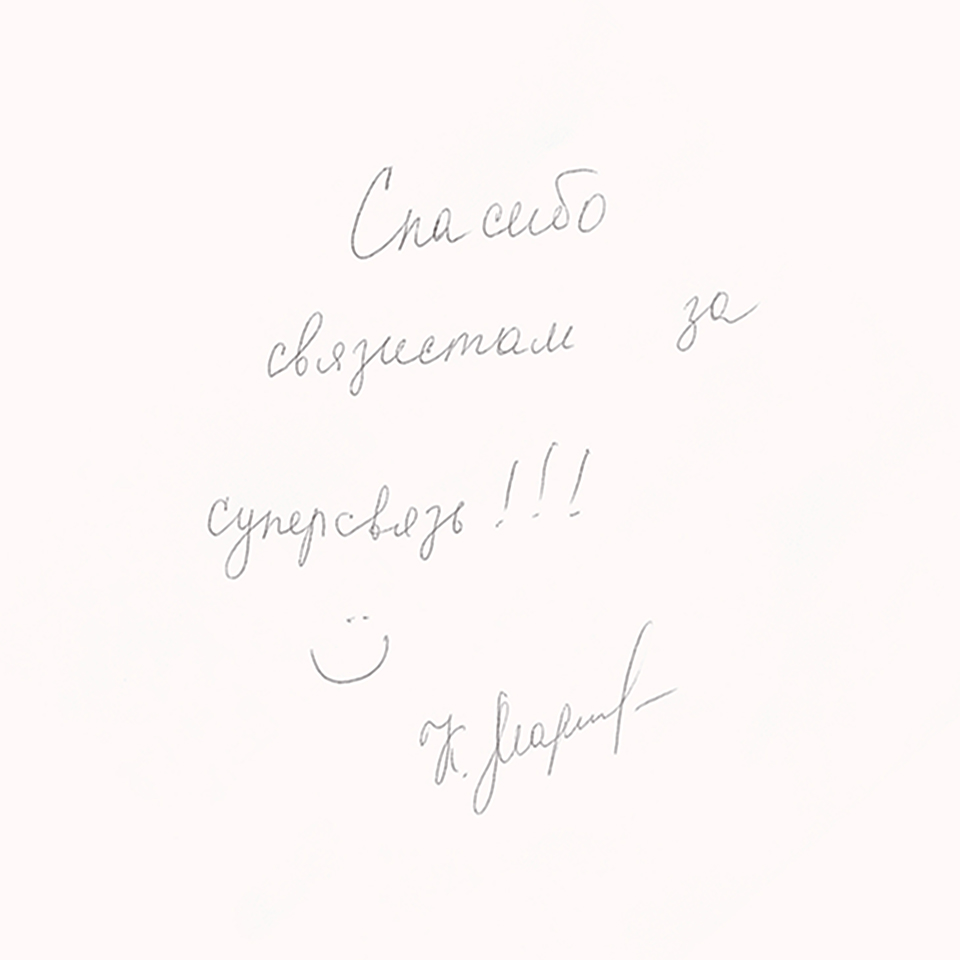 Спасибо
связистам за
суперсвязь!!!
К.